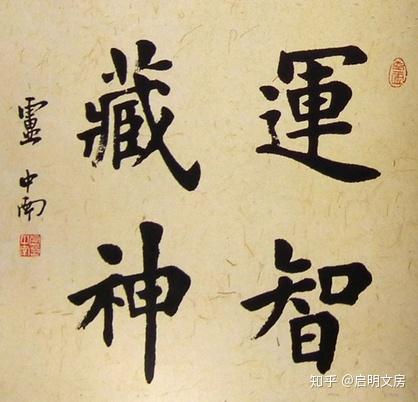 運智
藏神
盧中南
知乎 @启明文房